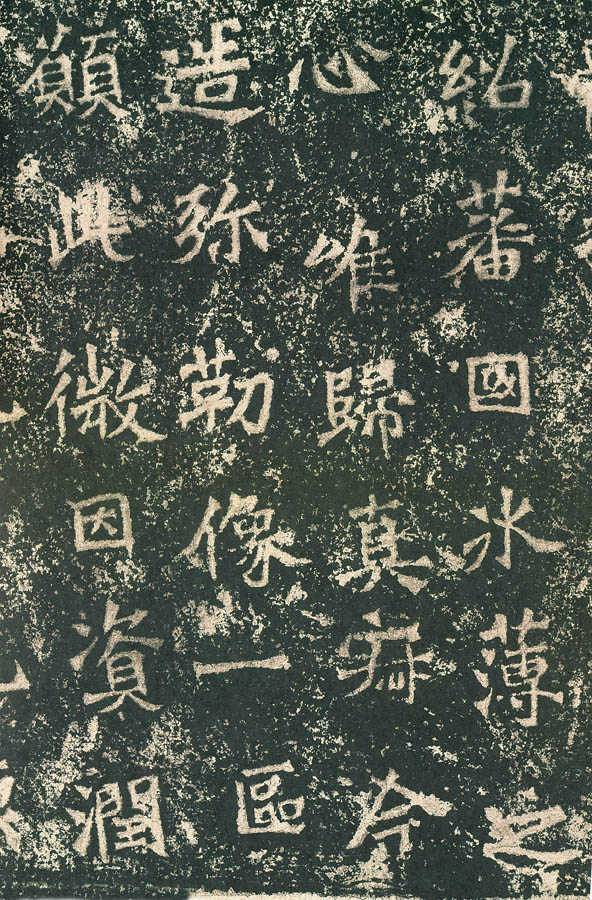 紹蕃國氷薄之
心唯歸真寂今
造弥勒像一區
願此微因資潤